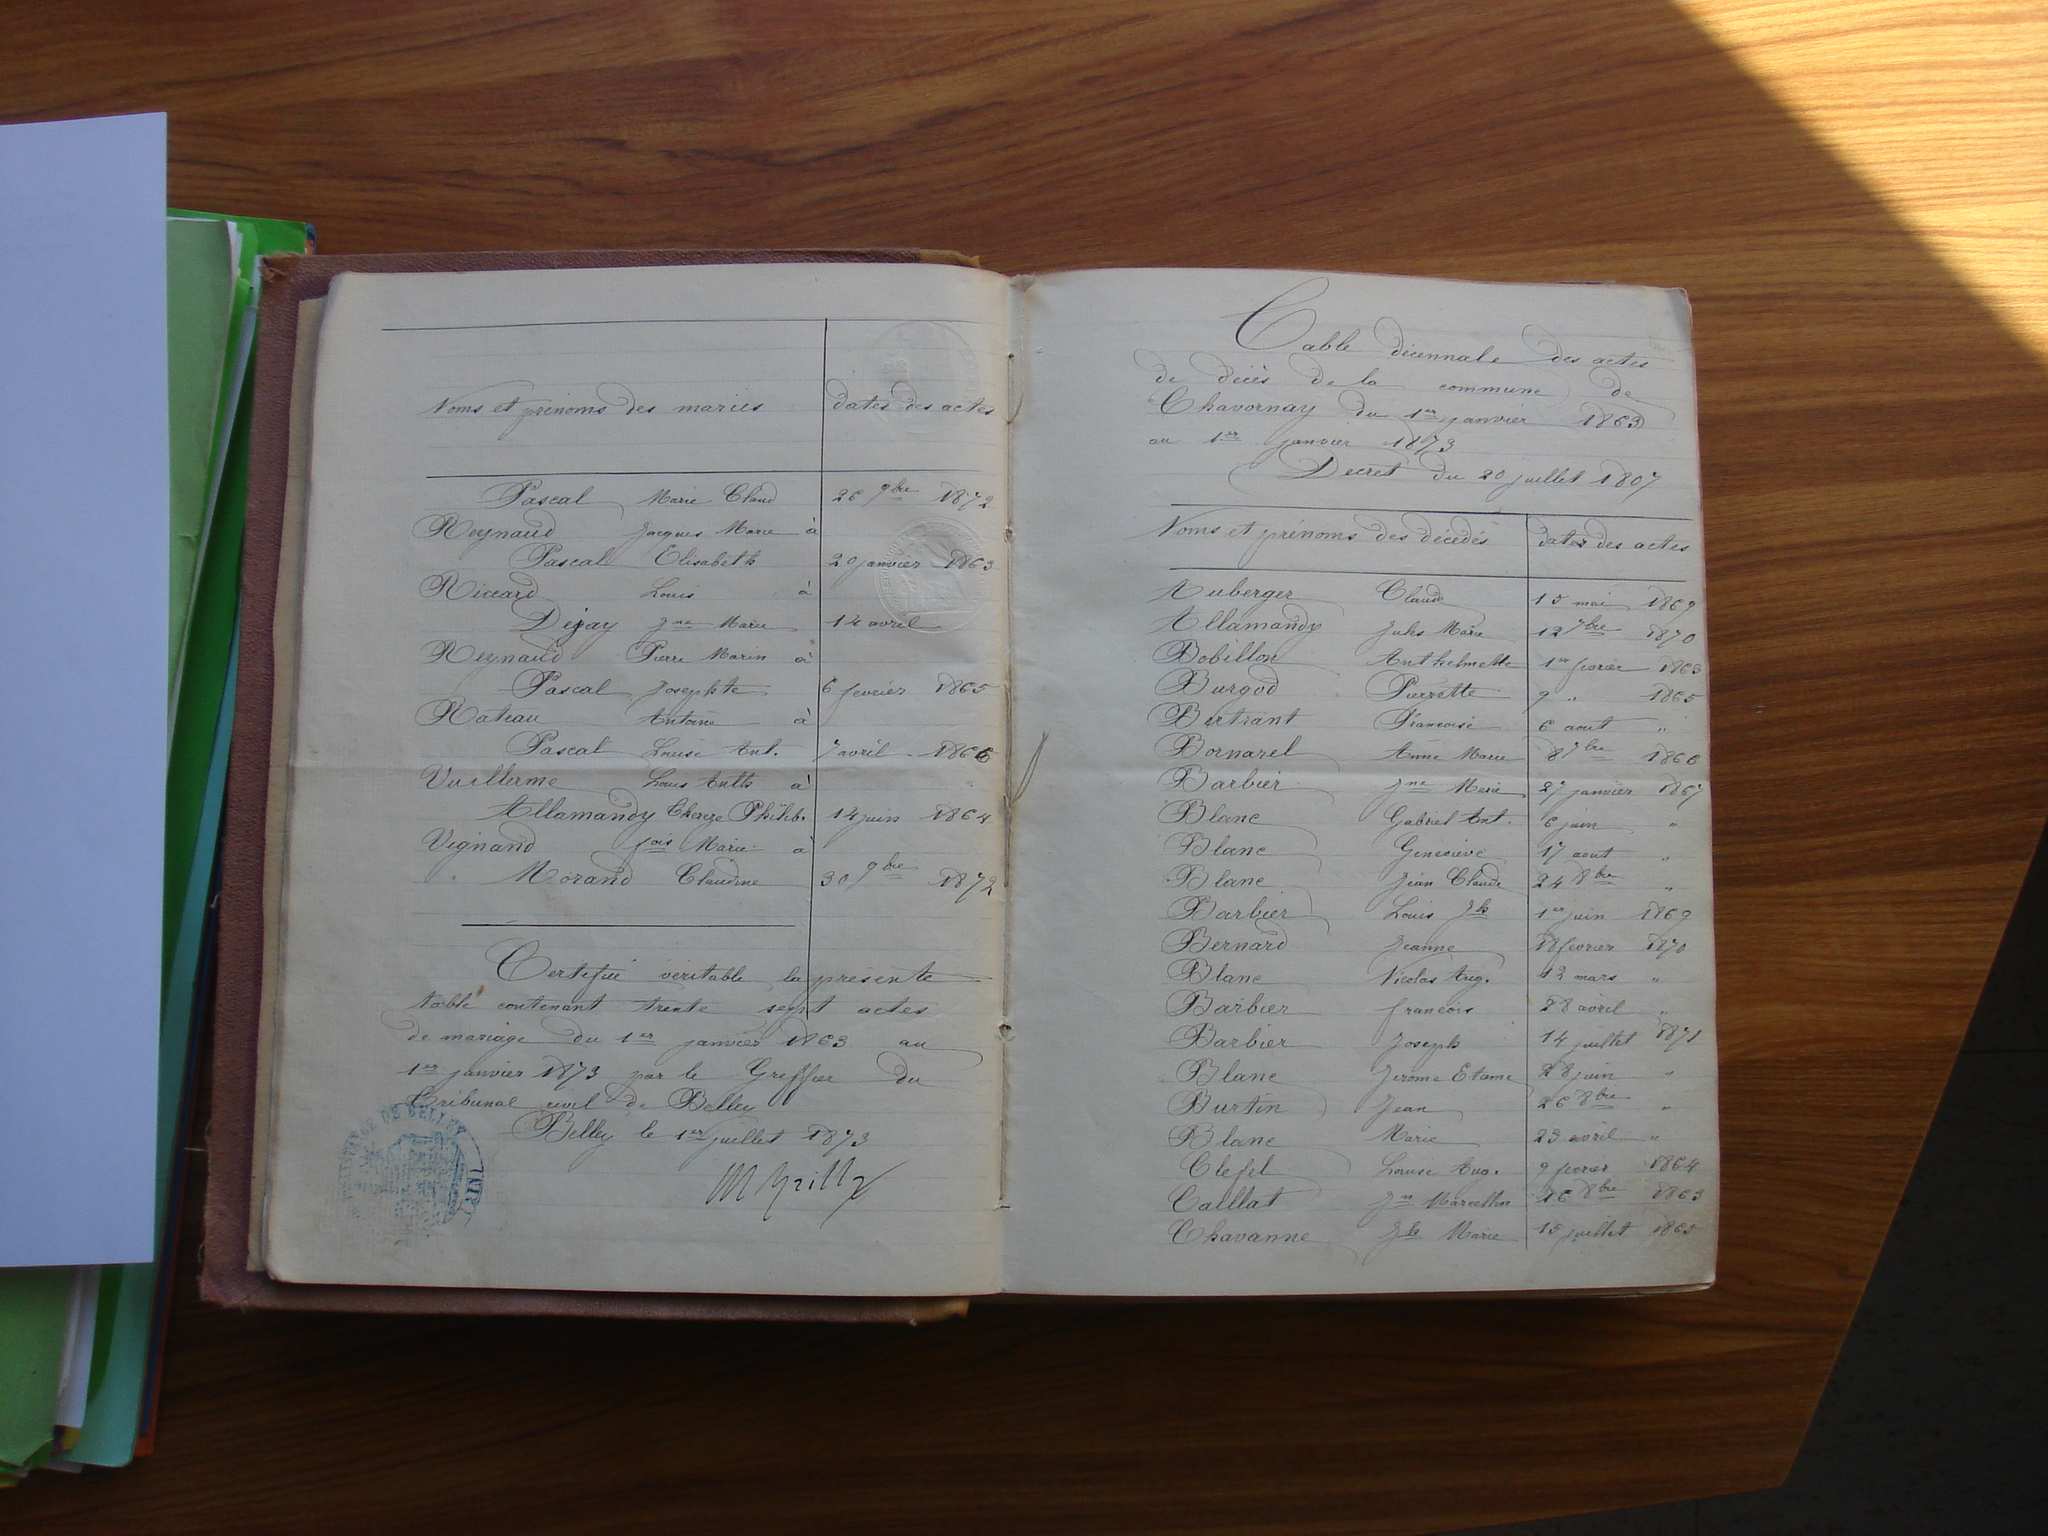 Noms et prénoms des mariés dates des actes
Pascal Marie Claud 26 9bre 1872
Reynaud Jacques Marie à
Pascal Elisabeth 20 janvier 1863
Riccard Louis à
Dejay Jne Marie 14 avril
Reynaud Pierre Marin à
Pascal Josephte 6 fevrier 1865
Rateau Antoine à
Pascal Louise Ant. 7 avril 1866
Vuillerme Louis Anth à
Allamandy Thereze Philib. 14 juin 1864
Vignand fois Marie à
" Morand Claudine 30 9bre 1872
Certifié véritable la présente
table contenant trente sept actes
de mariage du 1er janvier 1863 au
1er janvier 1873 par le Greffier du
Tribunal civil de Belley
Belley le 1er juillet 1873
DE BELLEY
Table décennale des actes
de décès de la commune de
Chavornay du 1er janvier 1863
au 1er janvier 1873
Decret du 20 juillet 1807
Noms et prénoms des décédés dates des actes
Auberger Claude 15 mai 1869
Allamandy Jules Marie 12 7bre 1870
Bobillon Anthelmette 1er fevrier 1863
Burgod Pierrette 9 " 1865
Bertrant Francoise 6 aout "
Bornarel Anne Marie 8 7bre 1866
Barbier Jne Marie 27 janvier 1867
Blanc Gabriel Ant. 6 juin "
Blanc Genevieve 17 aout "
Blanc Jean Claude 24 8bre "
Barbier Louis Jh 1er juin 1869
Bernard Jeanne 18 fevrier 1870
Blanc Nicolas Aug. 12 mars "
Barbier francois 28 avril "
Barbier Joseph 14 juillet 1871
Blanc Jerome Etame 28 juin "
Burtin Jean 26 8bre "
Blanc Marie 23 avril "
Clefel Louise Aug. 9 fevrier 1864
Caillat Jn Marcellin 16 8bre 1863
Chavanne Jh Marie 15 juillet 1865